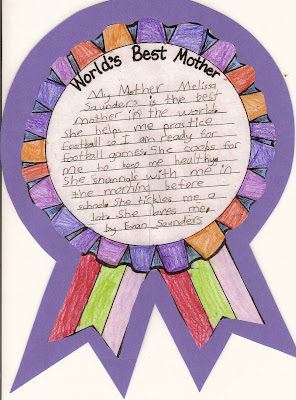 World's Best Mother
My Mother Melissa
Saunders is the best
mother in the world.
She helps me practice
football so I am ready for
football games. She cooks for
me to keep me healthy.
She snunnals with me in
the morning before
school. She tickles me a
lot. She loves me.
by Evan Saunders